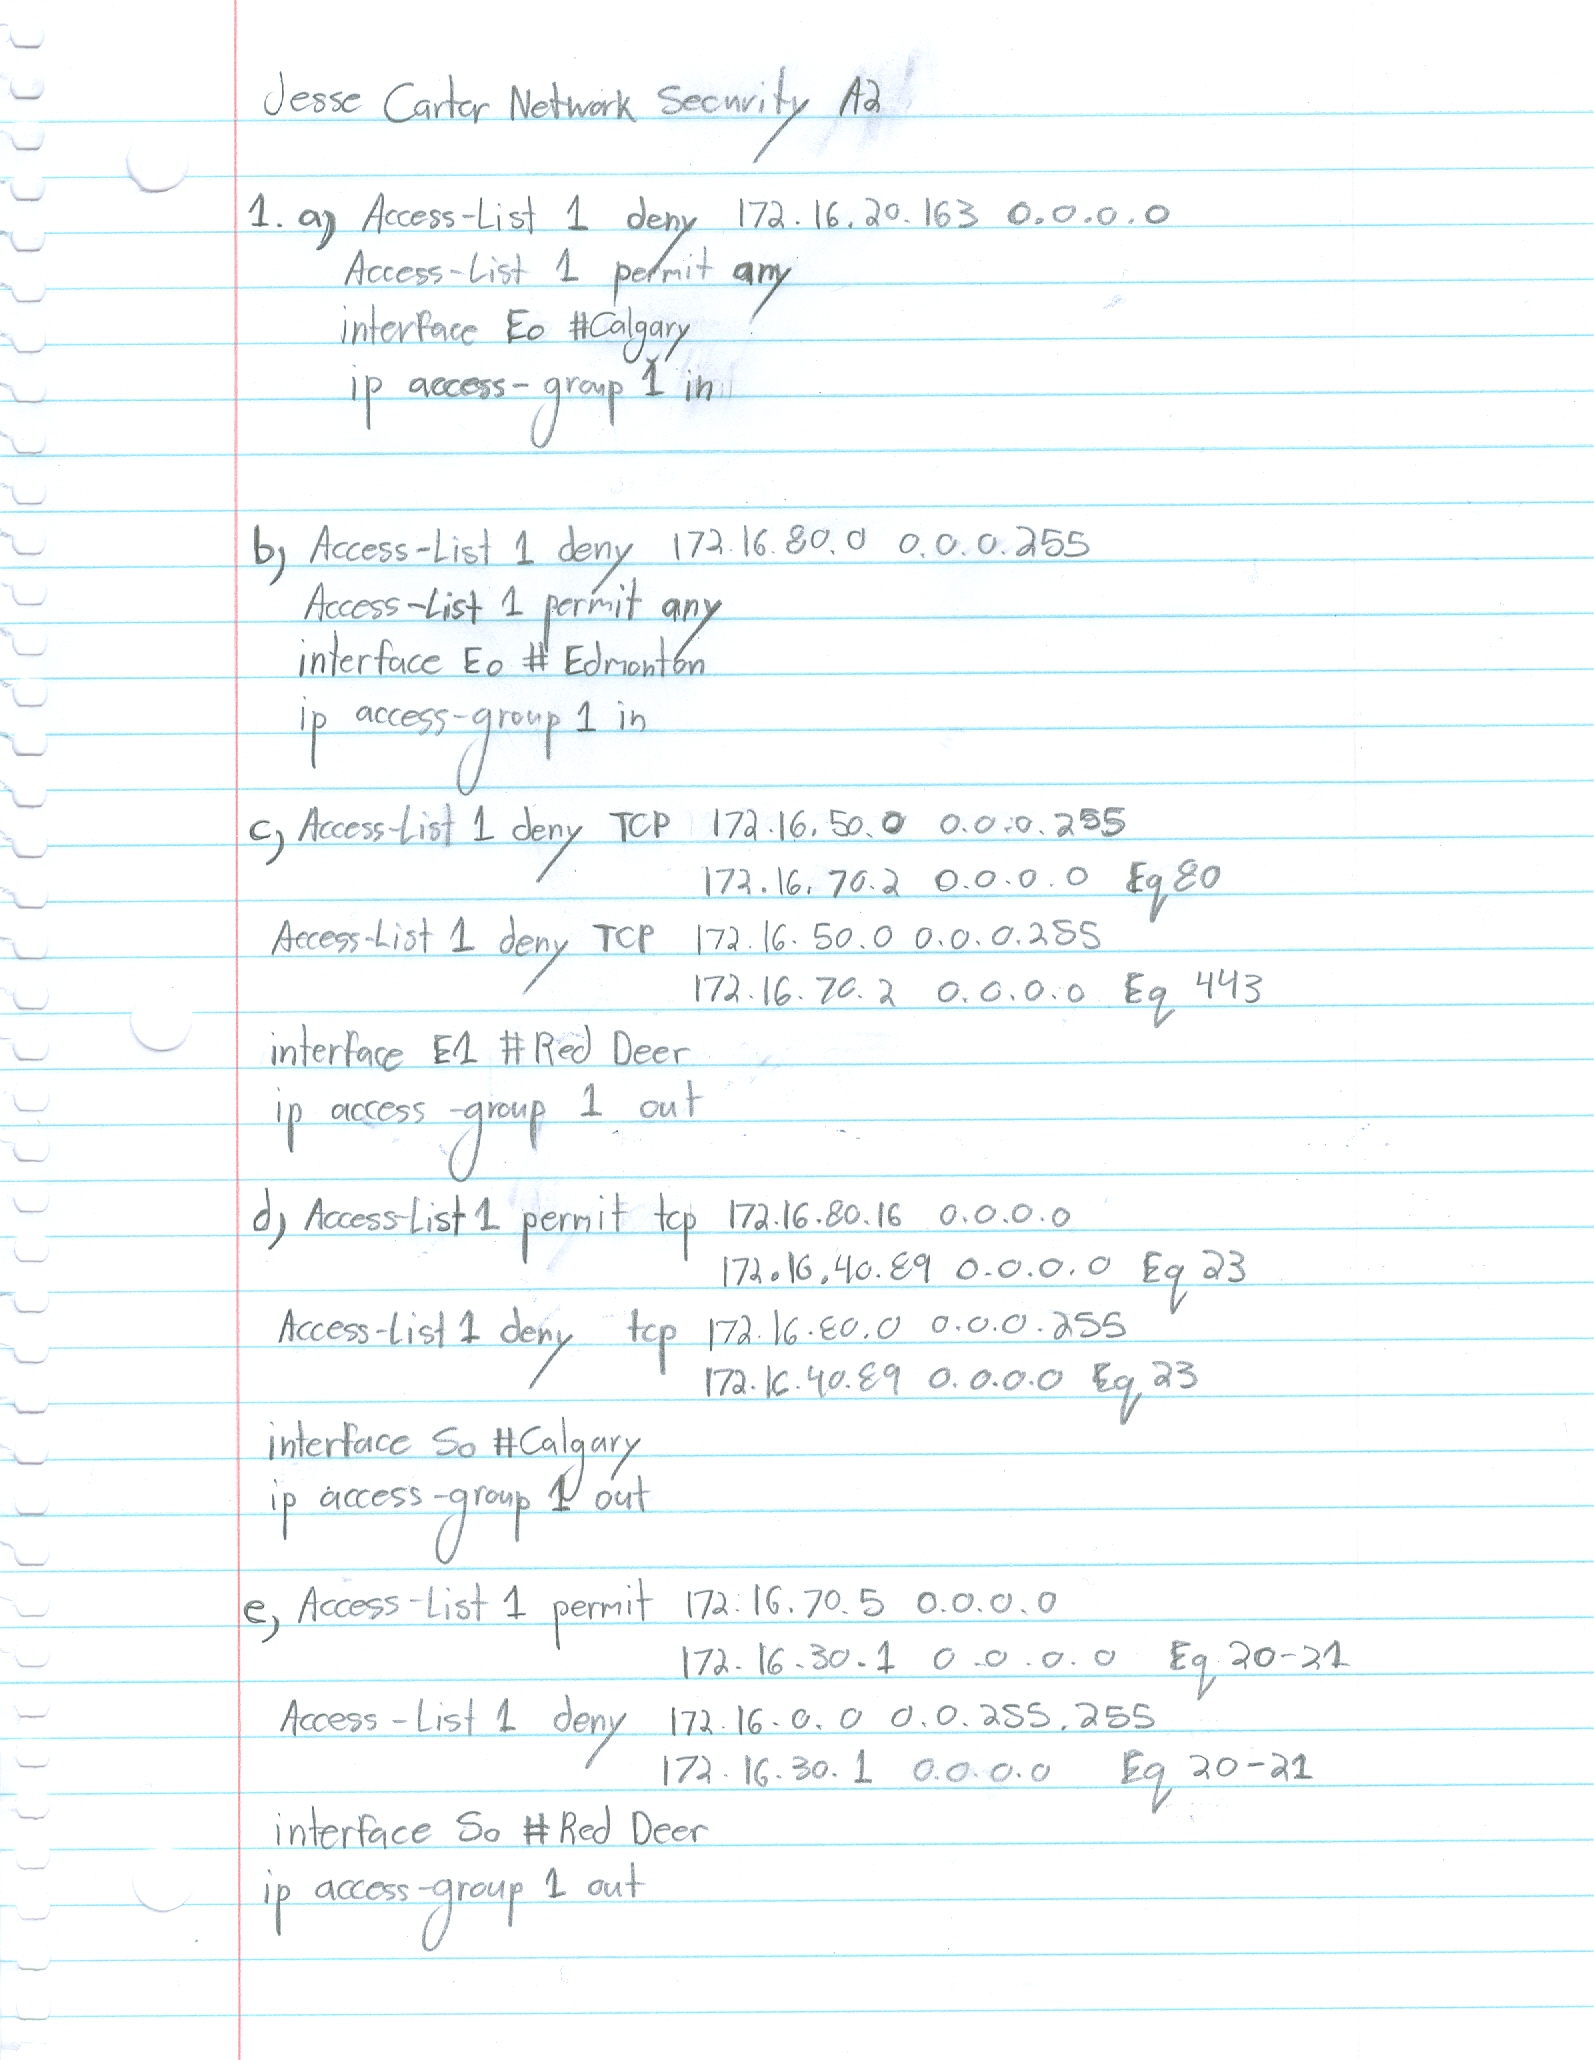 Jesse Carter Network Security A2
1. a) Access-List 1 deny 172.16.20.163 0.0.0.0
Access-List 1 permit any
interface E0 #Calgary
ip access-group 1 in
b) Access-List 1 deny 172.16.80.0 0.0.0.255
Access-List 1 permit any
interface E0 # Edmonton
ip access-group 1 in
c) Access-List 1 deny TCP 172.16.50.0 0.0.0.255
172.16.70.2 0.0.0.0 Eq 80
Access-List 1 deny TCP 172.16.50.0 0.0.0.255
172.16.70.2 0.0.0.0 Eq 443
interface E1 #Red Deer
ip access-group 1 out
d) Access-List 1 permit tcp 172.16.80.16 0.0.0.0
172.16.40.89 0.0.0.0 Eq 23
Access-List 1 deny tcp 172.16.80.0 0.0.0.255
172.16.40.89 0.0.0.0 Eq 23
interface S0 #Calgary
ip access-group 1 out
e) Access-List 1 permit 172.16.70.5 0.0.0.0
172.16.30.1 0.0.0.0 Eq 20-21
Access-List 1 deny 172.16.0.0 0.0.255.255
172.16.30.1 0.0.0.0 Eq 20-21
interface S0 #Red Deer
ip access-group 1 out